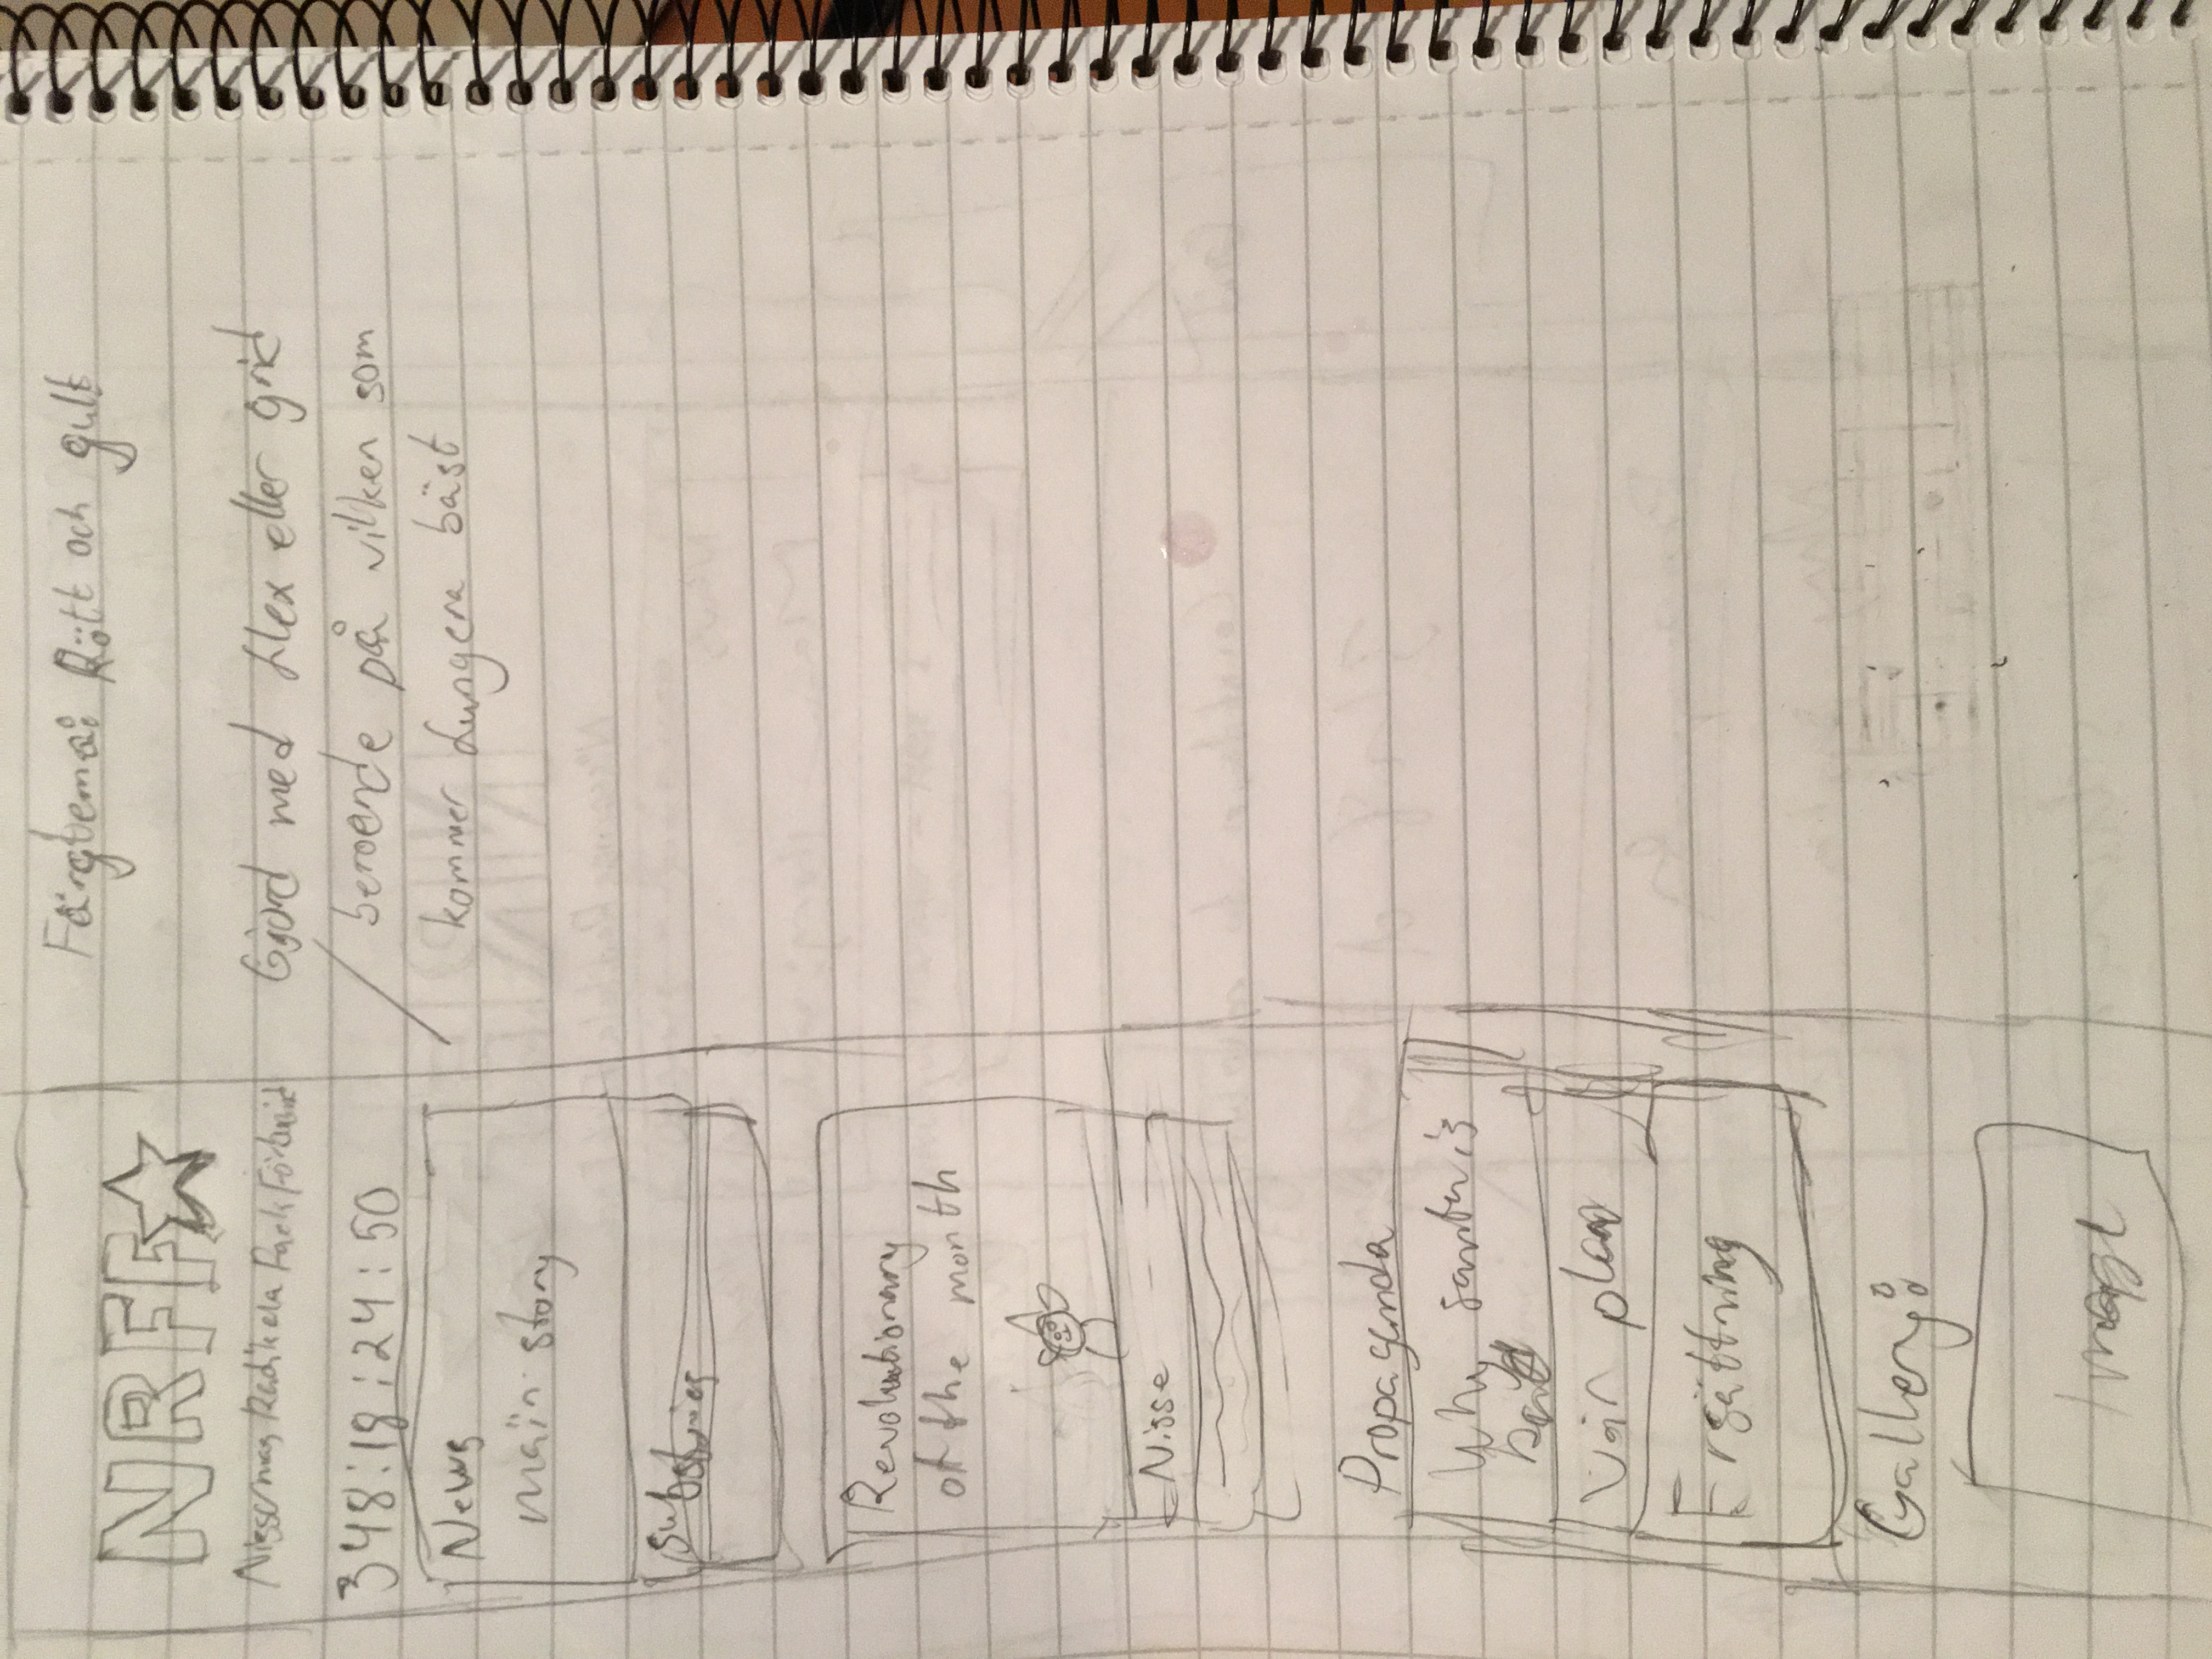 NRFF
Nissarnas Radikala Fack Förbund
348:18:24:50
News
main story
Substories
Revolutionary
of the month
Nisse
Propaganda
Why santa is
bad
Vår plan
Ersättning
Gallery:
Image
Färgtema: Rött och gult
Gjord med flex eller grid
beroende på vilken som
kommer fungera bäst